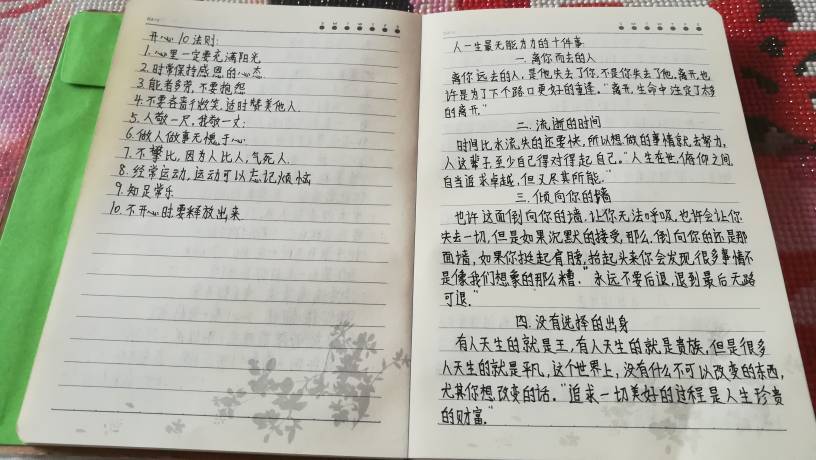 开心10法则:
1.心里一定要充满阳光
2.时常保持感恩的心态
3.能者多劳,不要抱怨
4.不要吝啬微笑,适时赞美他人.
5.人敬一尺,我敬一丈;
6.做人做事无愧于心
7.不攀比,因为人比人,气死人.
8.经常运动,运动可以忘记烦恼
9.知足常乐
10.不开心时要释放出来
人一生最无能为力的十件事
一.离你而去的人
离你远去的人,是他失去了你,不是你失去了他,离开,也
许是为了下个路口更好的重逢。"离开,生命中注定了太多
的离开."
二.流逝的时间
时间比水流失的还要快,所以想做的事情就去努力,
人这辈子至少自己得对得起自己。"人生在世,俯仰之间,
自当追求卓越,但又尽其所能."
三.倾向你的墙
也许这面倒向你的墙,让你无法呼吸,也许会让你
失去一切,但是如果沉默的接受,那么,倒向你的还是那
面墙,如果你挺起肩膀,抬起头来你会发现,很多事情不
是像我们想象的那么糟."永远不要后退,退到最后无路
可退."
四.没有选择的出身
有人天生的就是王,有人天生的就是贵族,但是很多
人天生的就是平凡,这个世界上,没有什么不可以改变的东西,
尤其你想改变的话。"追求一切美好的过程是人生珍贵
的财富."